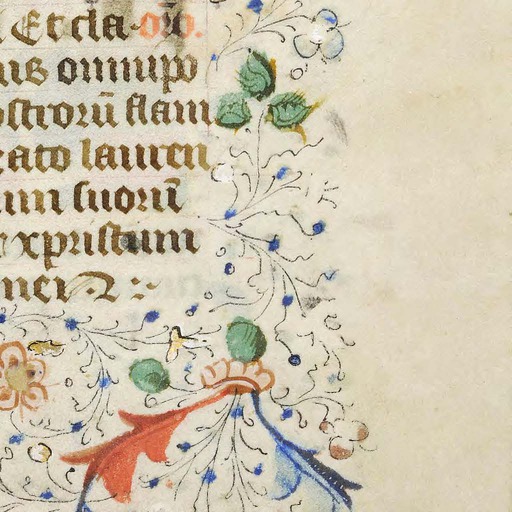 Et cla oro.
us omnipo
ostrorū flam
eato lauren
um suorū
xpristum
men